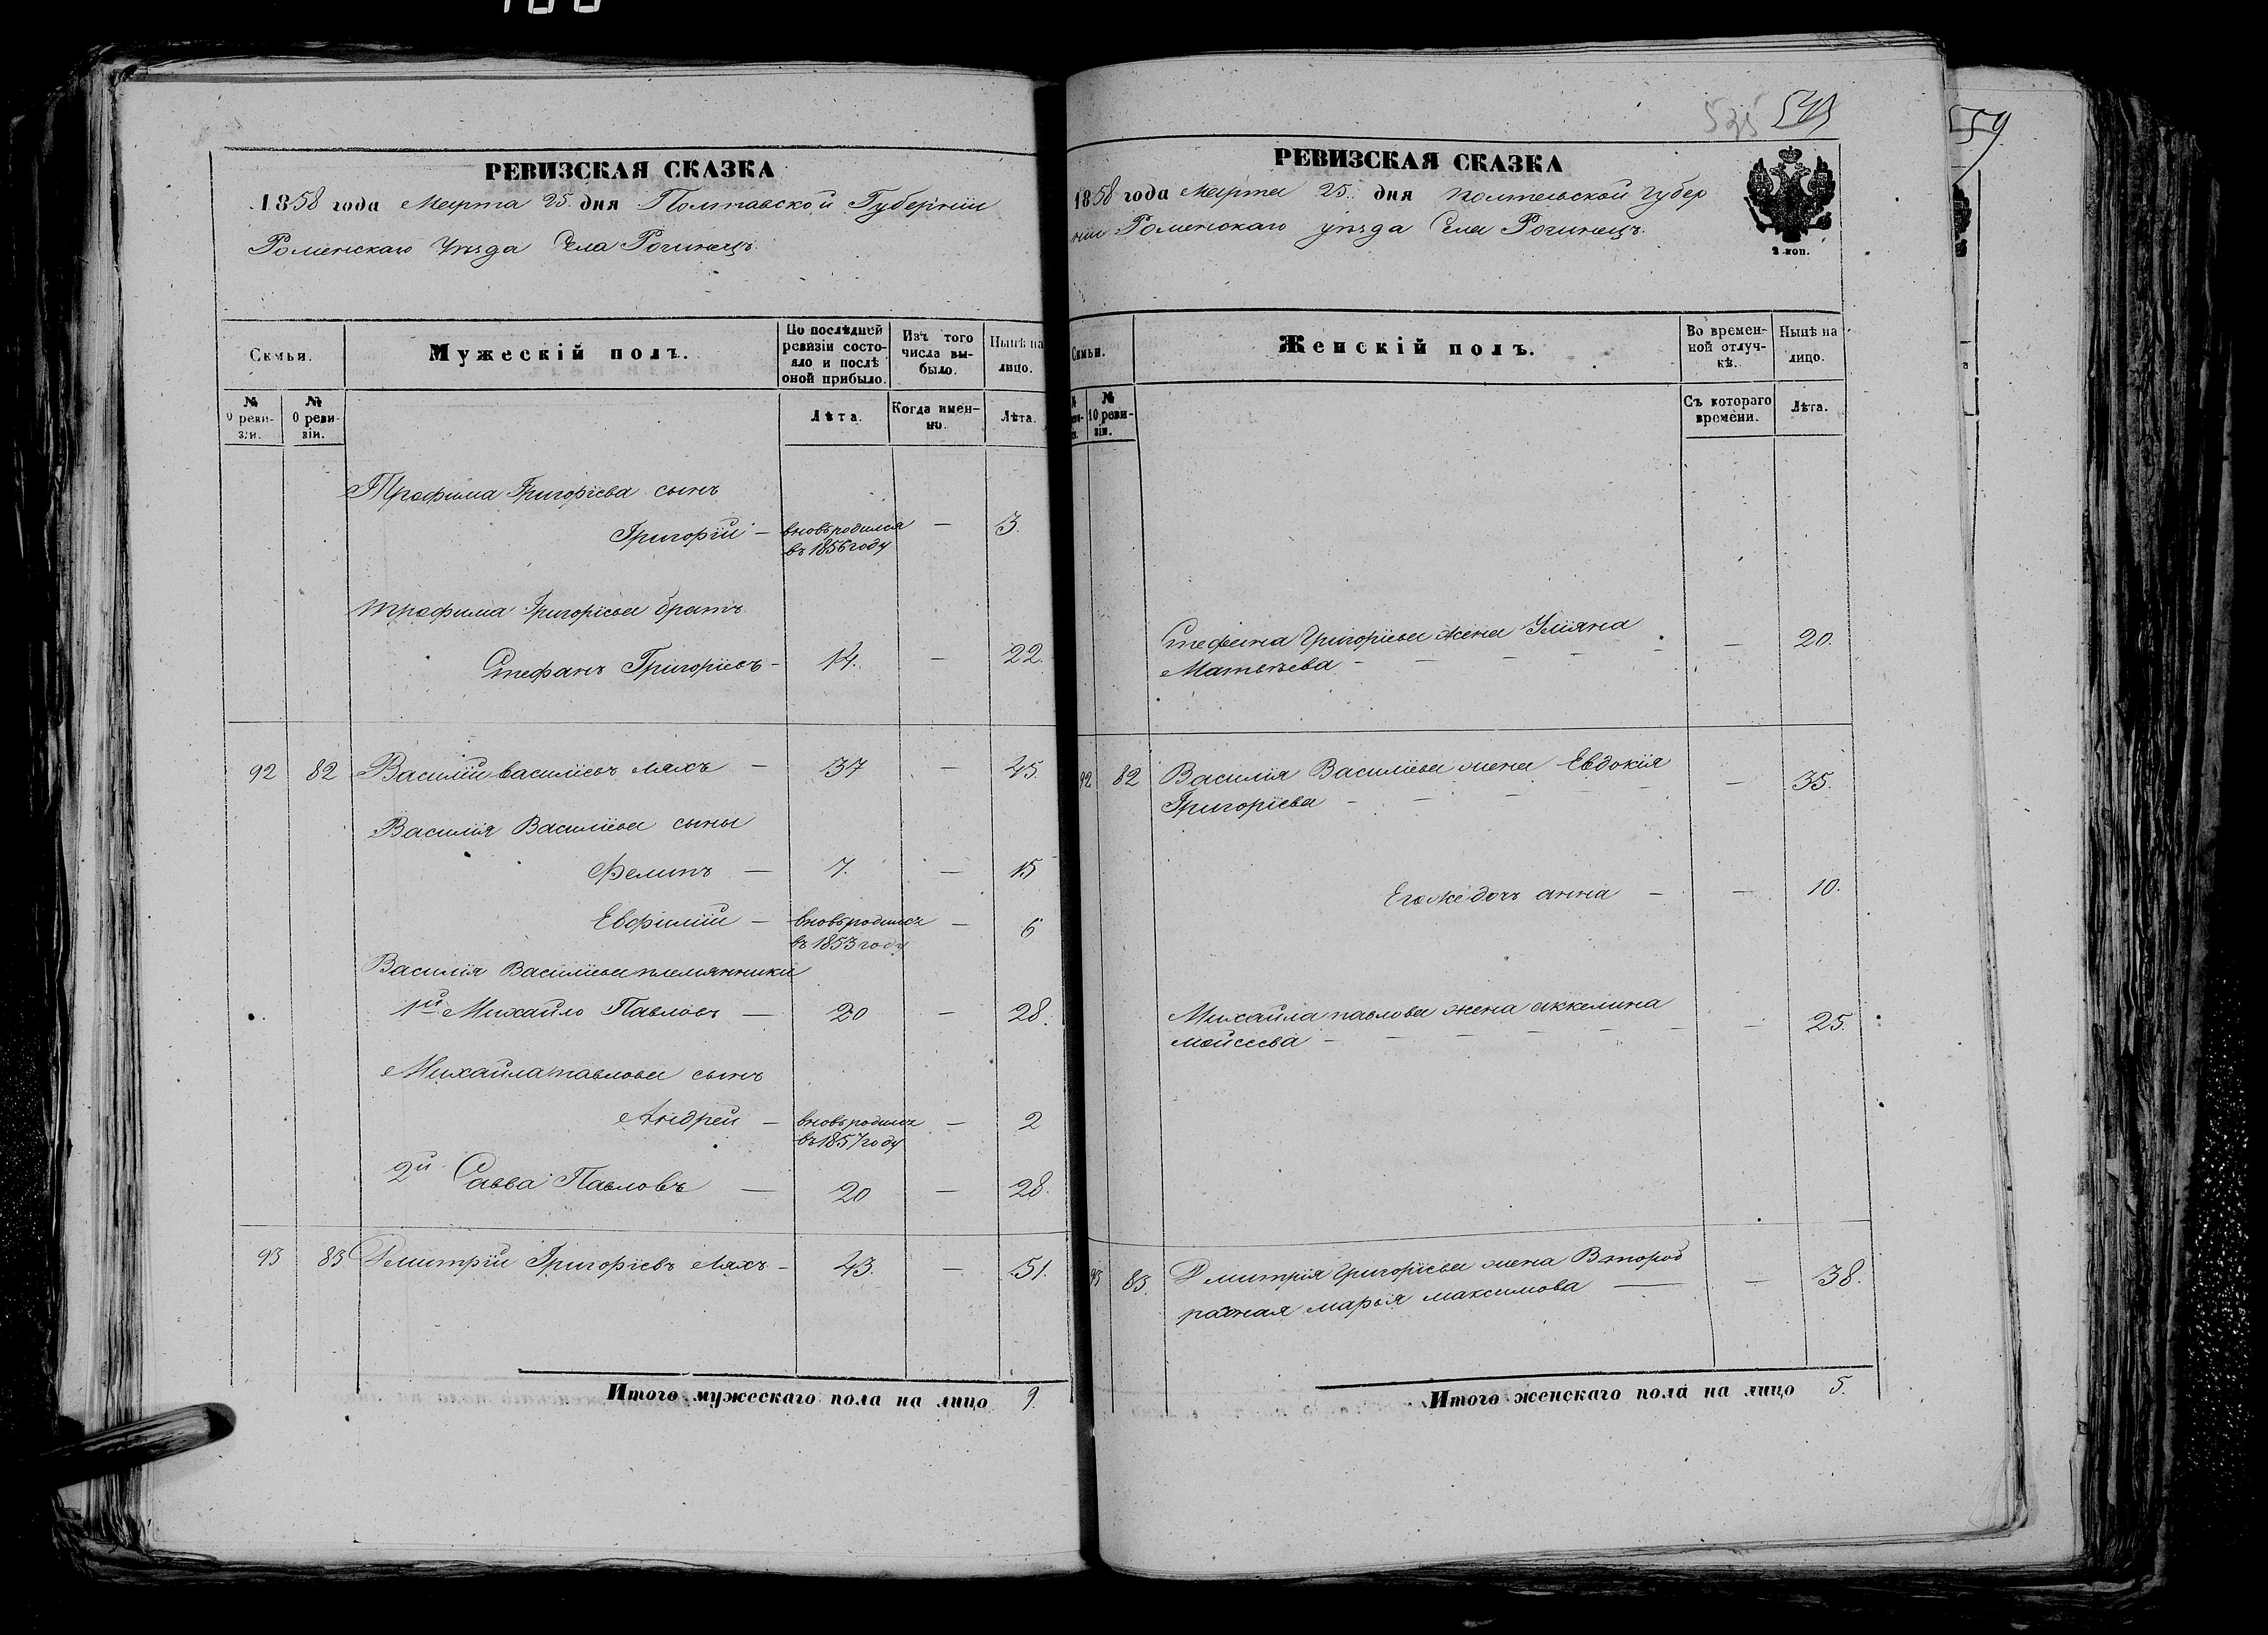 РЕВИЗСКАЯ СКАЗКА
1858 года Марта 25. дня Полтавской Губерніи
Роменскаго Уѣзда Села Рогинецъ.
Семьи.
Мужескій полъ.
По послѣдней ревизіи состояло и послѣ оной прибыло.
Изъ того числа выбыло.
Нынѣ на лицо.
№ 9 ревизіи.
№ 10 ревизіи.
Лѣта.
Когда именно.
Лѣта.
Трофима Григоріева сынъ
Григорій — вновь родился — 3.
въ 1856 году
Трофима Григоріева братъ
Стефанъ Григоріевъ — 14. — 22.
92 82 Василій Василіевъ Ляхъ — 37 — 45.
Василія Василіева сыны
Фелипъ — 7. — 15
Евфимій — вновь родился — 6
въ 1853 году
Василія Василіева племянники
1й Михайло Павловъ — 20 — 28.
Михайла Павлова сынъ
Андрей — вновь родился — 2
въ 1857 году
2й Савва Павловъ — 20 — 28.
93 83 Дмитрій Григоріевъ Ляхъ — 43. — 51.
Итого мужескаго пола на лицо 9.
545
РЕВИЗСКАЯ СКАЗКА
1858 года Марта 25. дня Полтавской Губер
ніи Роменскаго уѣзда Села Рогинецъ.
2 коп.
Семьи.
Женскій полъ.
Во временной отлучкѣ.
Нынѣ на лицо.
№ 10 ревизіи.
Съ котораго времени.
Лѣта.
Стефана Григоріева жена Уліяна
Матвѣева — — 20.
92 82 Василія Василіева жена Евдокія
Григоріева — — 35.
Его же дочь Анна — — 10.
Михайла Павлова жена Аккелина
Моисеева — — 25.
93 83. Дмитрія Григоріева жена Второб
рачная Марья Максимова — — 38.
Итого женскаго пола на лицо 5.
59